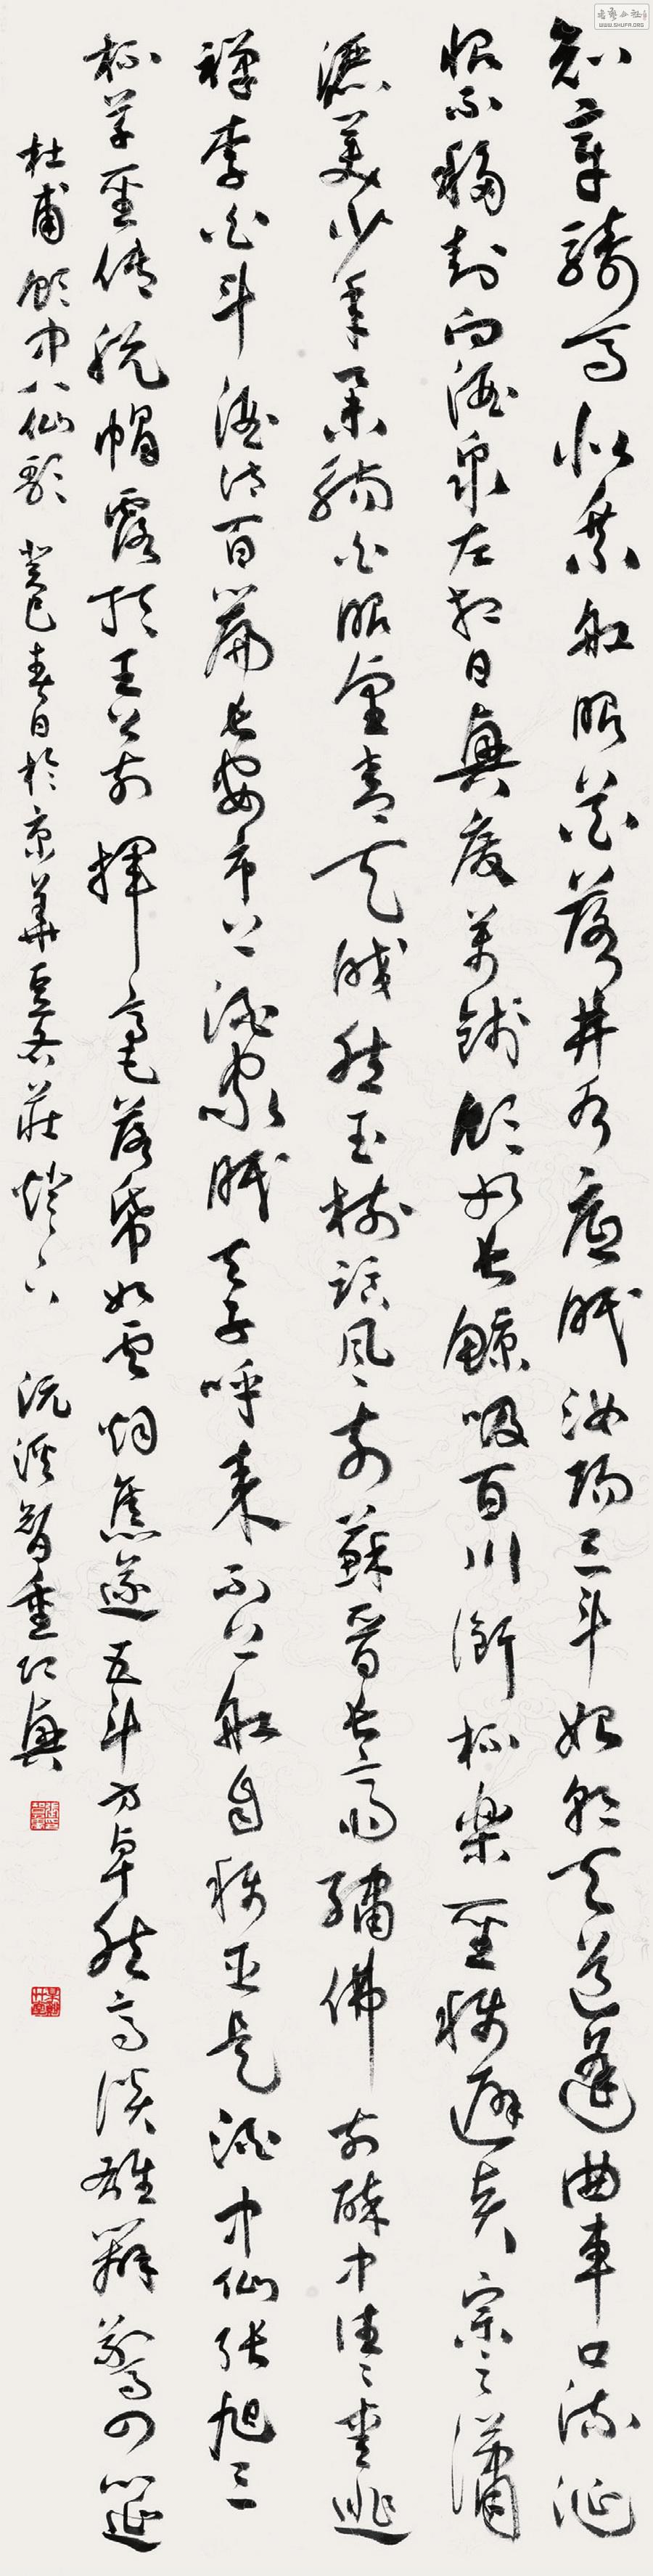 知章騎馬似乘舡眼花落井水底眠汝陽三斗始朝天道逢曲車口流涎
恨不移封向酒泉左相日興費萬錢飲如長鯨吸百川銜杯樂聖稱避賢宗之瀟
灑美少年舉觴白眼望青天皎然玉樹臨風前蘇晉長齋繡佛前醉中往往愛逃
禪李白斗酒詩百篇長安市上酒家眠天子呼來不上舡自稱臣是酒中仙張旭三
杯草聖傳脫帽露頂王公前揮毫落紙如雲烟焦遂五斗方卓然高談雄辯驚四筵
杜甫飲中八仙歌 癸巳春日於京華豆各莊燈下
WWW.SHUFA.ORG